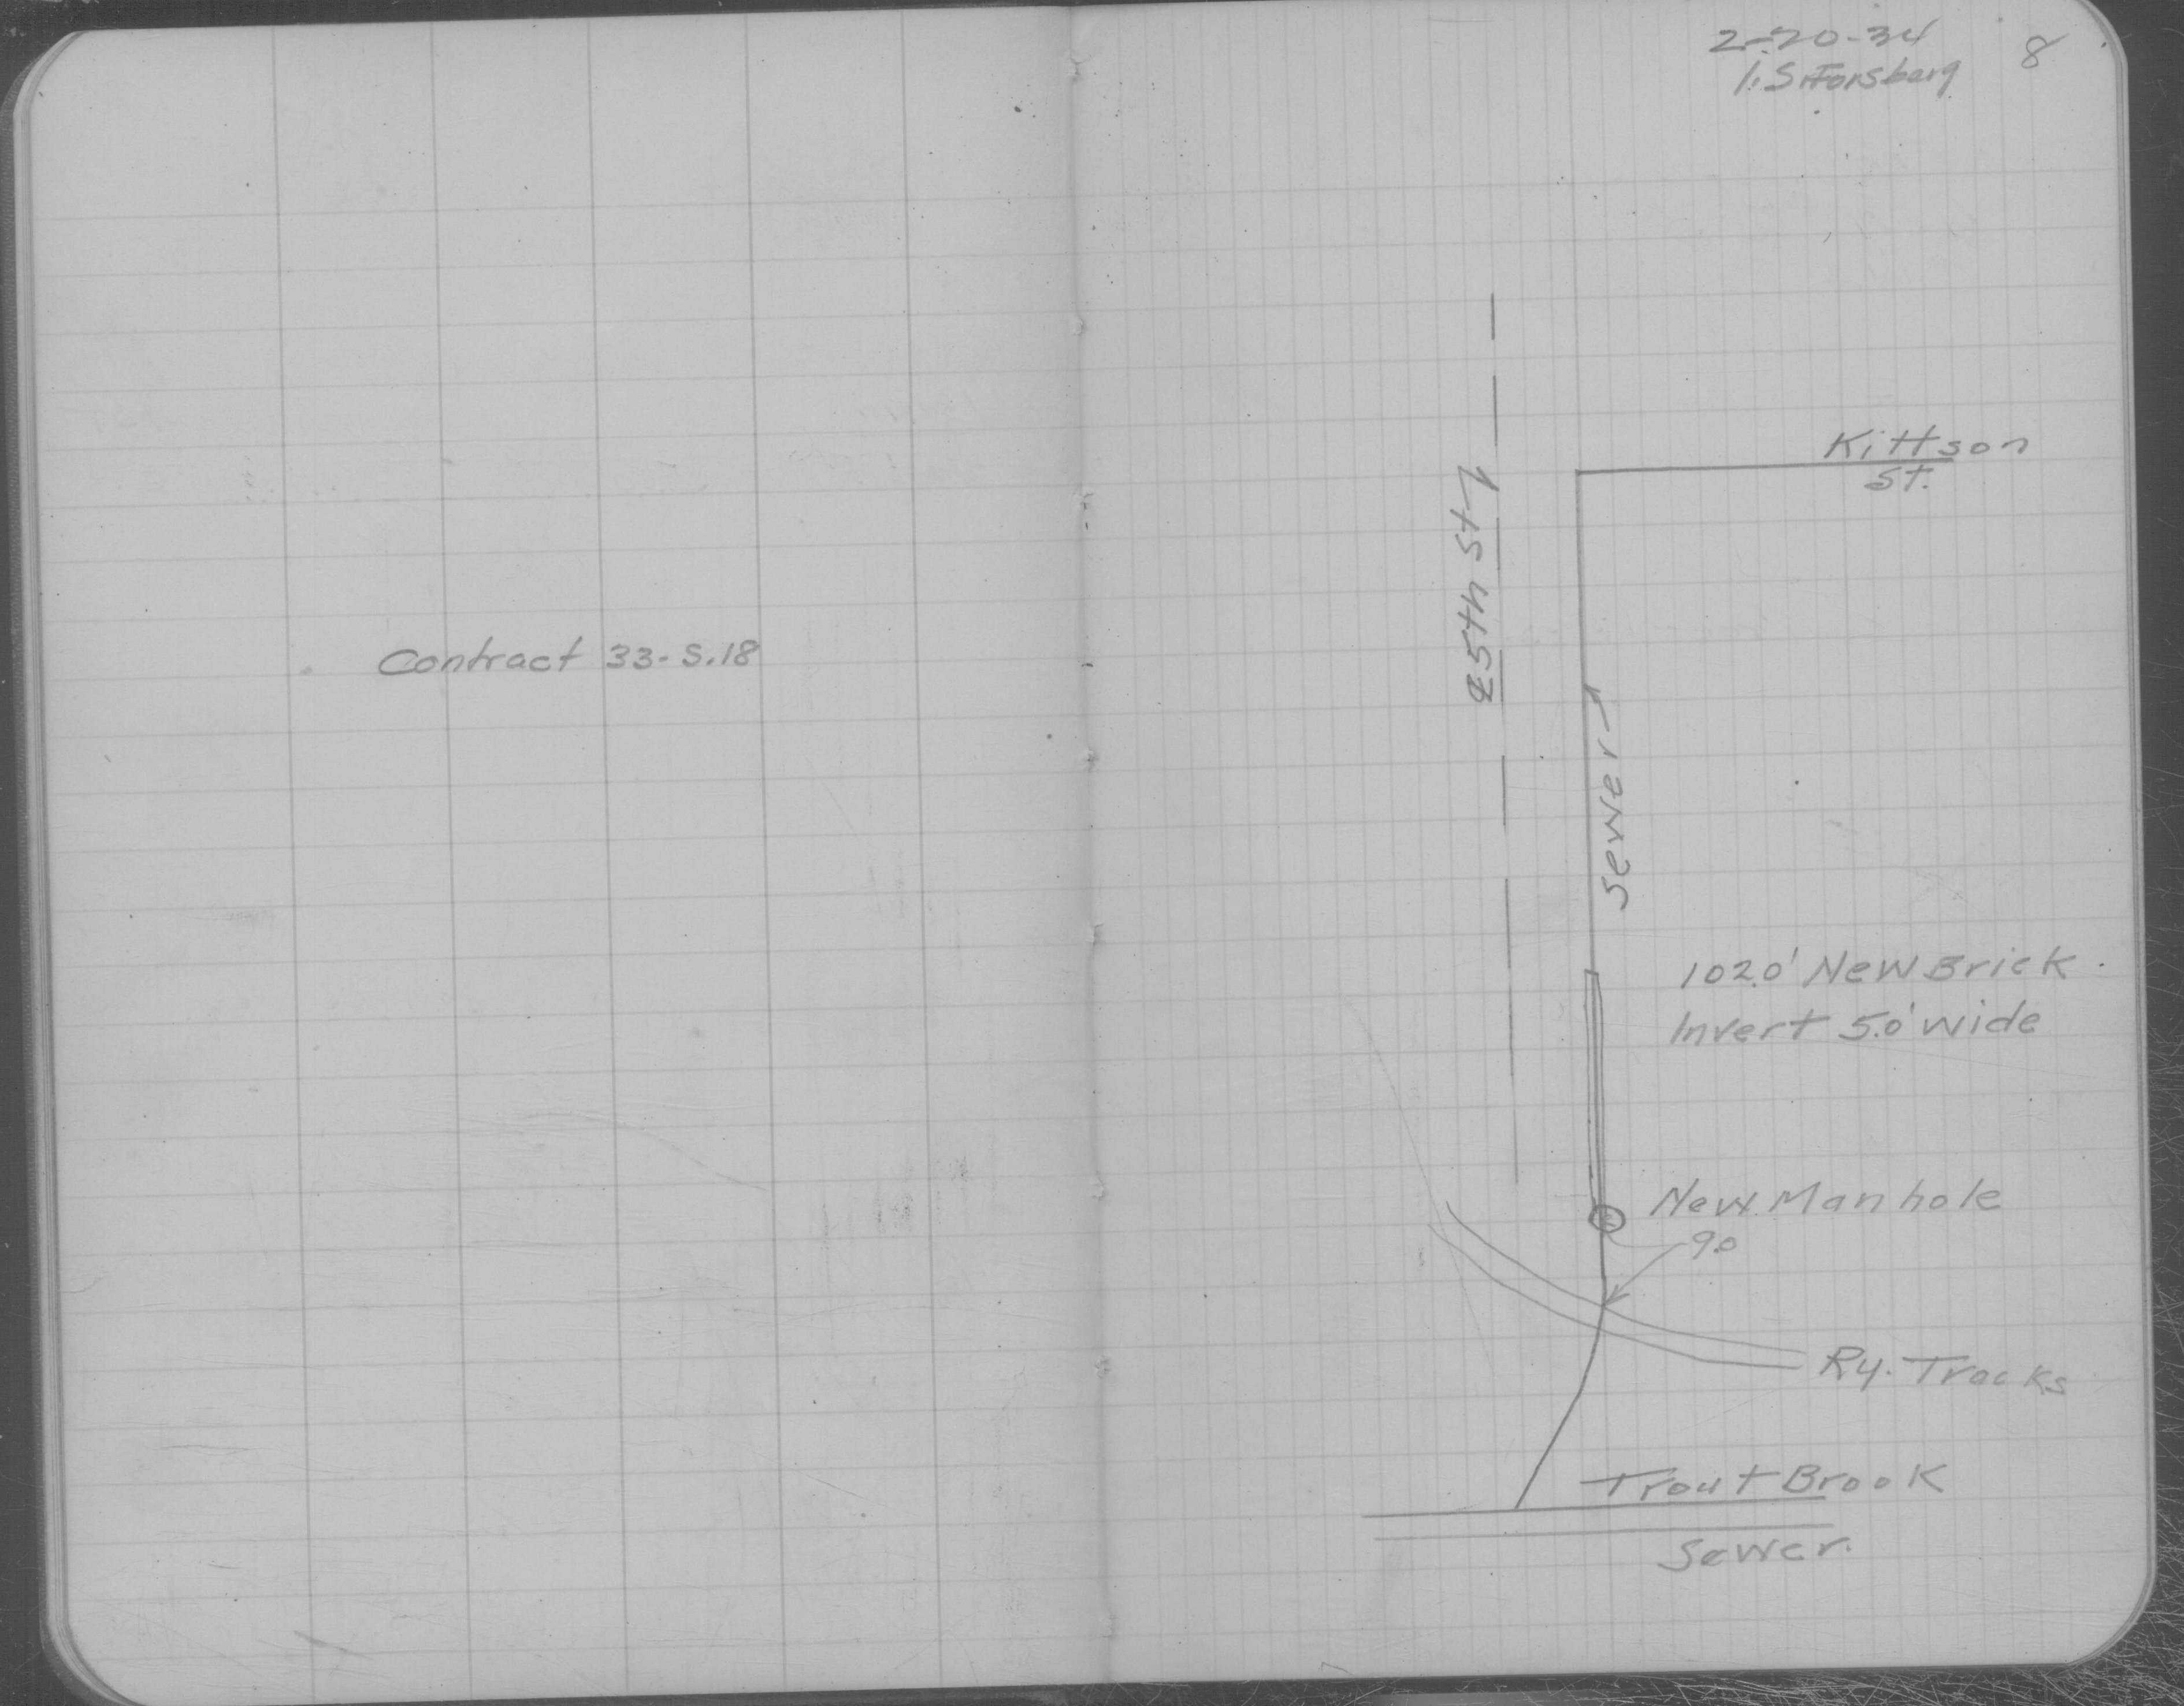 Contract 33-S.18
2-20-34
8
Forsberg
Kittson
St.
℄ 5th St
Sewer
102.0' New Brick
Invert 5.0' wide
New Manhole
9.0
Ry. Tracks
Trout Brook
Sewer.